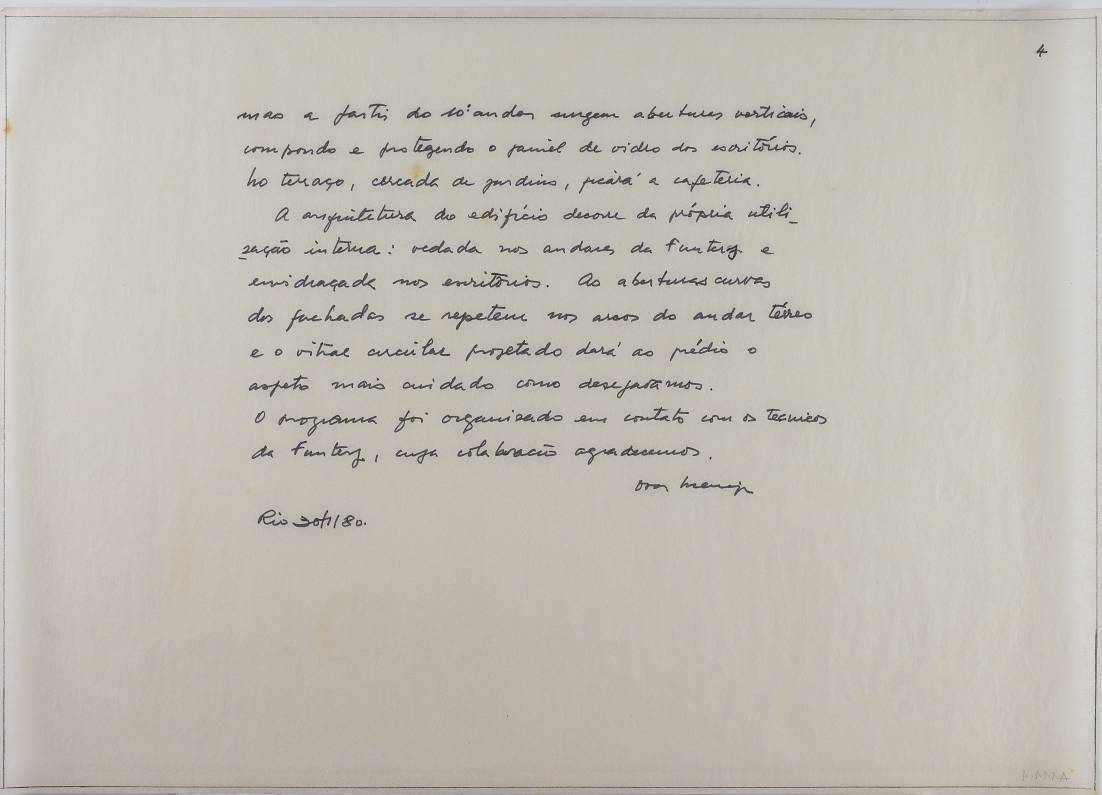 4
mas a partir do 10º andar surgem aberturas verticais,
compondo e protegendo o painel de vidro dos escritórios.
No terraço, cercada de jardins, ficará a cafeteria.
A arquitetura do edifício decorre da própria utili_
zação interna: vedada nos andares da Funterj e
envidraçada nos escritórios. As aberturas curvas
das fachadas se repetem nos arcos do andar térreo
e o vitral circular projetado dará ao prédio o
aspeto mais cuidado como desejavamos.
O programa foi organizado em contato com os tecnicos
da Funterj, cuja colaboração agradecemos.
Rio 30/1/80.